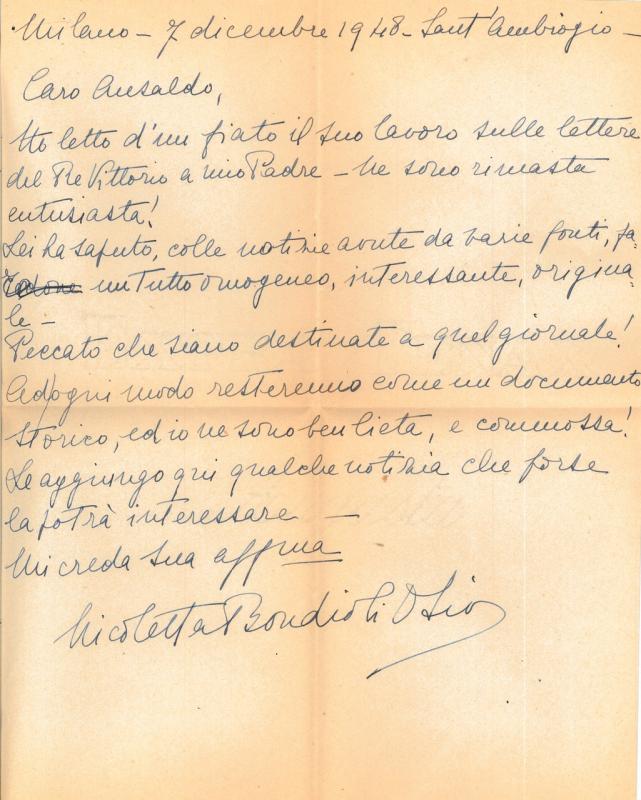 Milano - 7 dicembre 1948 - Sant'Ambrogio -
Caro Ansaldo,
Ho letto d'un fiato il suo lavoro sulle lettere
del Re Vittorio a mio Padre - Ne sono rimasta
entusiasta!
Lei ha saputo, colle notizie avute da varie fonti, fa=
un tutto omogeneo, interessante, origina=
le -
Peccato che siano destinate a quel giornale!
Ad ogni modo resteranno come un documento
storico, ed io ne sono ben lieta, e commossa!
Le aggiungo qui qualche notizia che forse
la potrà interessare -
Mi creda sua affma
Nicoletta Bondioli Osio